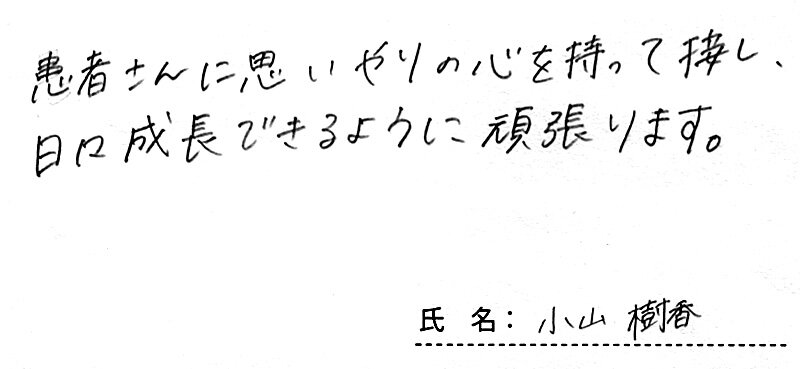 患者さんに思いやりの心を持って接し、
日々成長できるように頑張ります。
氏 名： 小山 樹香